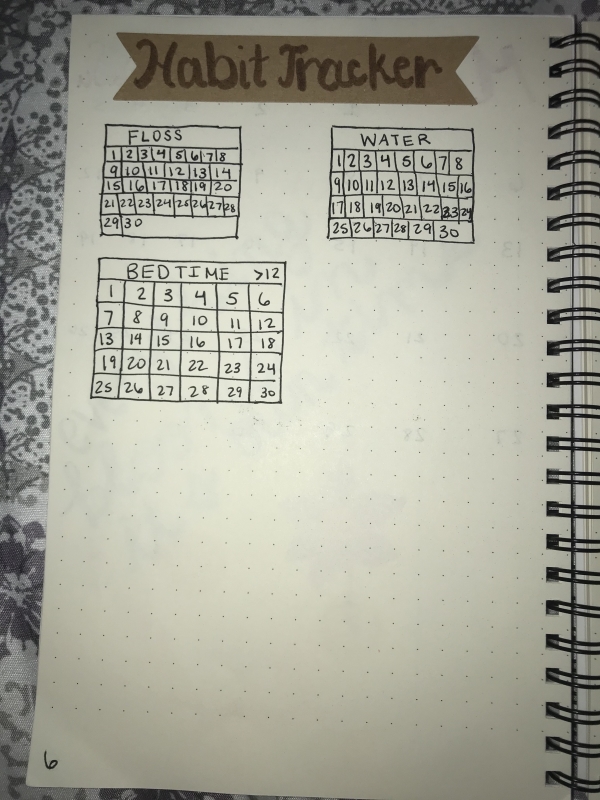 Habit Tracker
FLOSS
1 2 3 4 5 6 7 8
9 10 11 12 13 14
15 16 17 18 19 20
21 22 23 24 25 26 27 28
29 30
WATER
1 2 3 4 5 6 7 8
9 10 11 12 13 14 15 16
17 18 19 20 21 22 23 24
25 26 27 28 29 30
BEDTIME >12
1 2 3 4 5 6
7 8 9 10 11 12
13 14 15 16 17 18
19 20 21 22 23 24
25 26 27 28 29 30
6